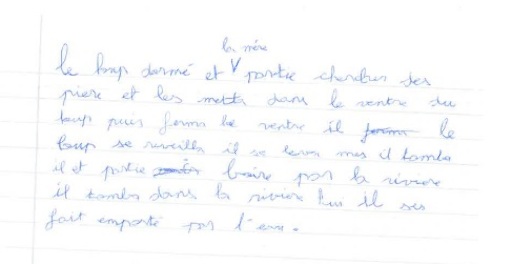 la mère
le loup dormé et V partie chercher des
piere et les metta dans le ventre du
loup puis ferma le ventre il ferma le
loup se reveilla il se leva mes il tomba
il et partie boire par la riviere
il tomba dans la riviere lui il ses
fait emporté par l'eau.